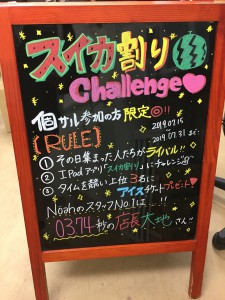 スイカ割り
Challenge♡
個サル参加の方限定◎!!
2019.07.15
2019.07.31まで
【RULE】
① その日集まった人たちがライバル!!
② IPadアプリ「スイカ割り」にチャレンジ
③ タイムを競い上位3名に
アイスチケットプレゼント♡
NoahのスタッフNo.1は…!!
0374秒の店長大地さん!!